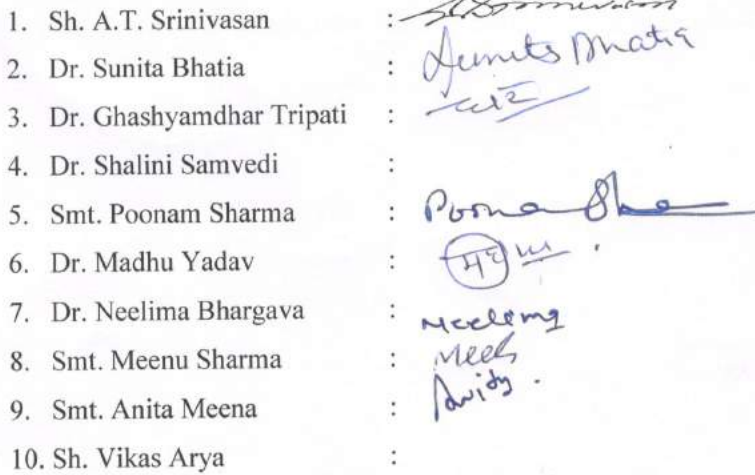 1. Sh. A.T. Srinivasan :
2. Dr. Sunita Bhatia : Sunita Bhatia
3. Dr. Ghashyamdhar Tripati :
4. Dr. Shalini Samvedi :
5. Smt. Poonam Sharma : Poona
6. Dr. Madhu Yadav :
7. Dr. Neelima Bhargava : Neelima
8. Smt. Meenu Sharma :
9. Smt. Anita Meena :
10. Sh. Vikas Arya :